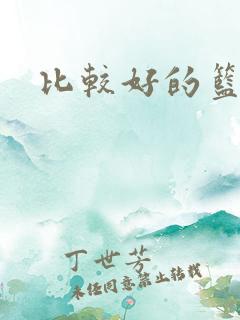 比較好的籃
丁世芳
未任同意禁止转载